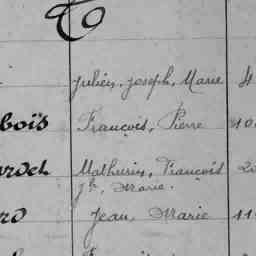 Julien, Joseph, Marie 4
bois François, Pierre 10
ardel Mathurin, François 20
Jh Marie.
rd Jean Marie 11